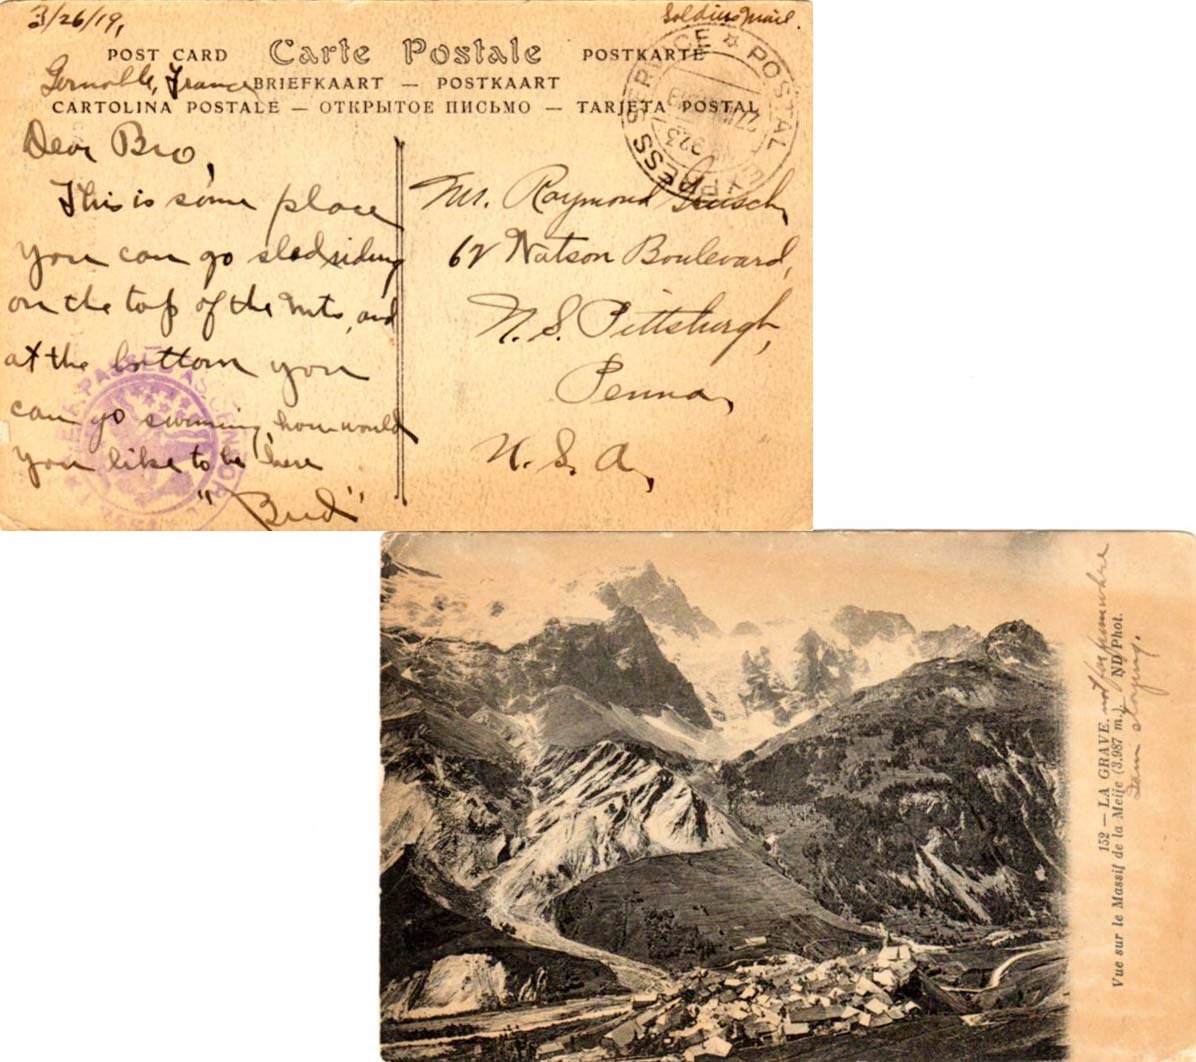 3/26/19,
Soldiers mail.
POST CARD Carte Postale POSTKARTE
Gernoble, France
BRIEFKAART — POSTKAART
CARTOLINA POSTALE — ОТКРЫТОЕ ПИСЬМО — TARJETA POSTAL
POSTAL EXPRESS SERVICE
923
Dear Bro,
This is some place
you can go sledsiding
on the top of the mts, and
at the bottom you
can go swimming, how would
you like to be here
"Bud"
PASSED AS CENSORED
Mr. Raymond
62 Watson Boulevard,
N. S. Pittsburgh,
Penna,
U. S. A,
152 — LA GRAVE. not far from where
Vue sur le Massif de la Meije (3.987 m.) ND Phot.
I am staying.